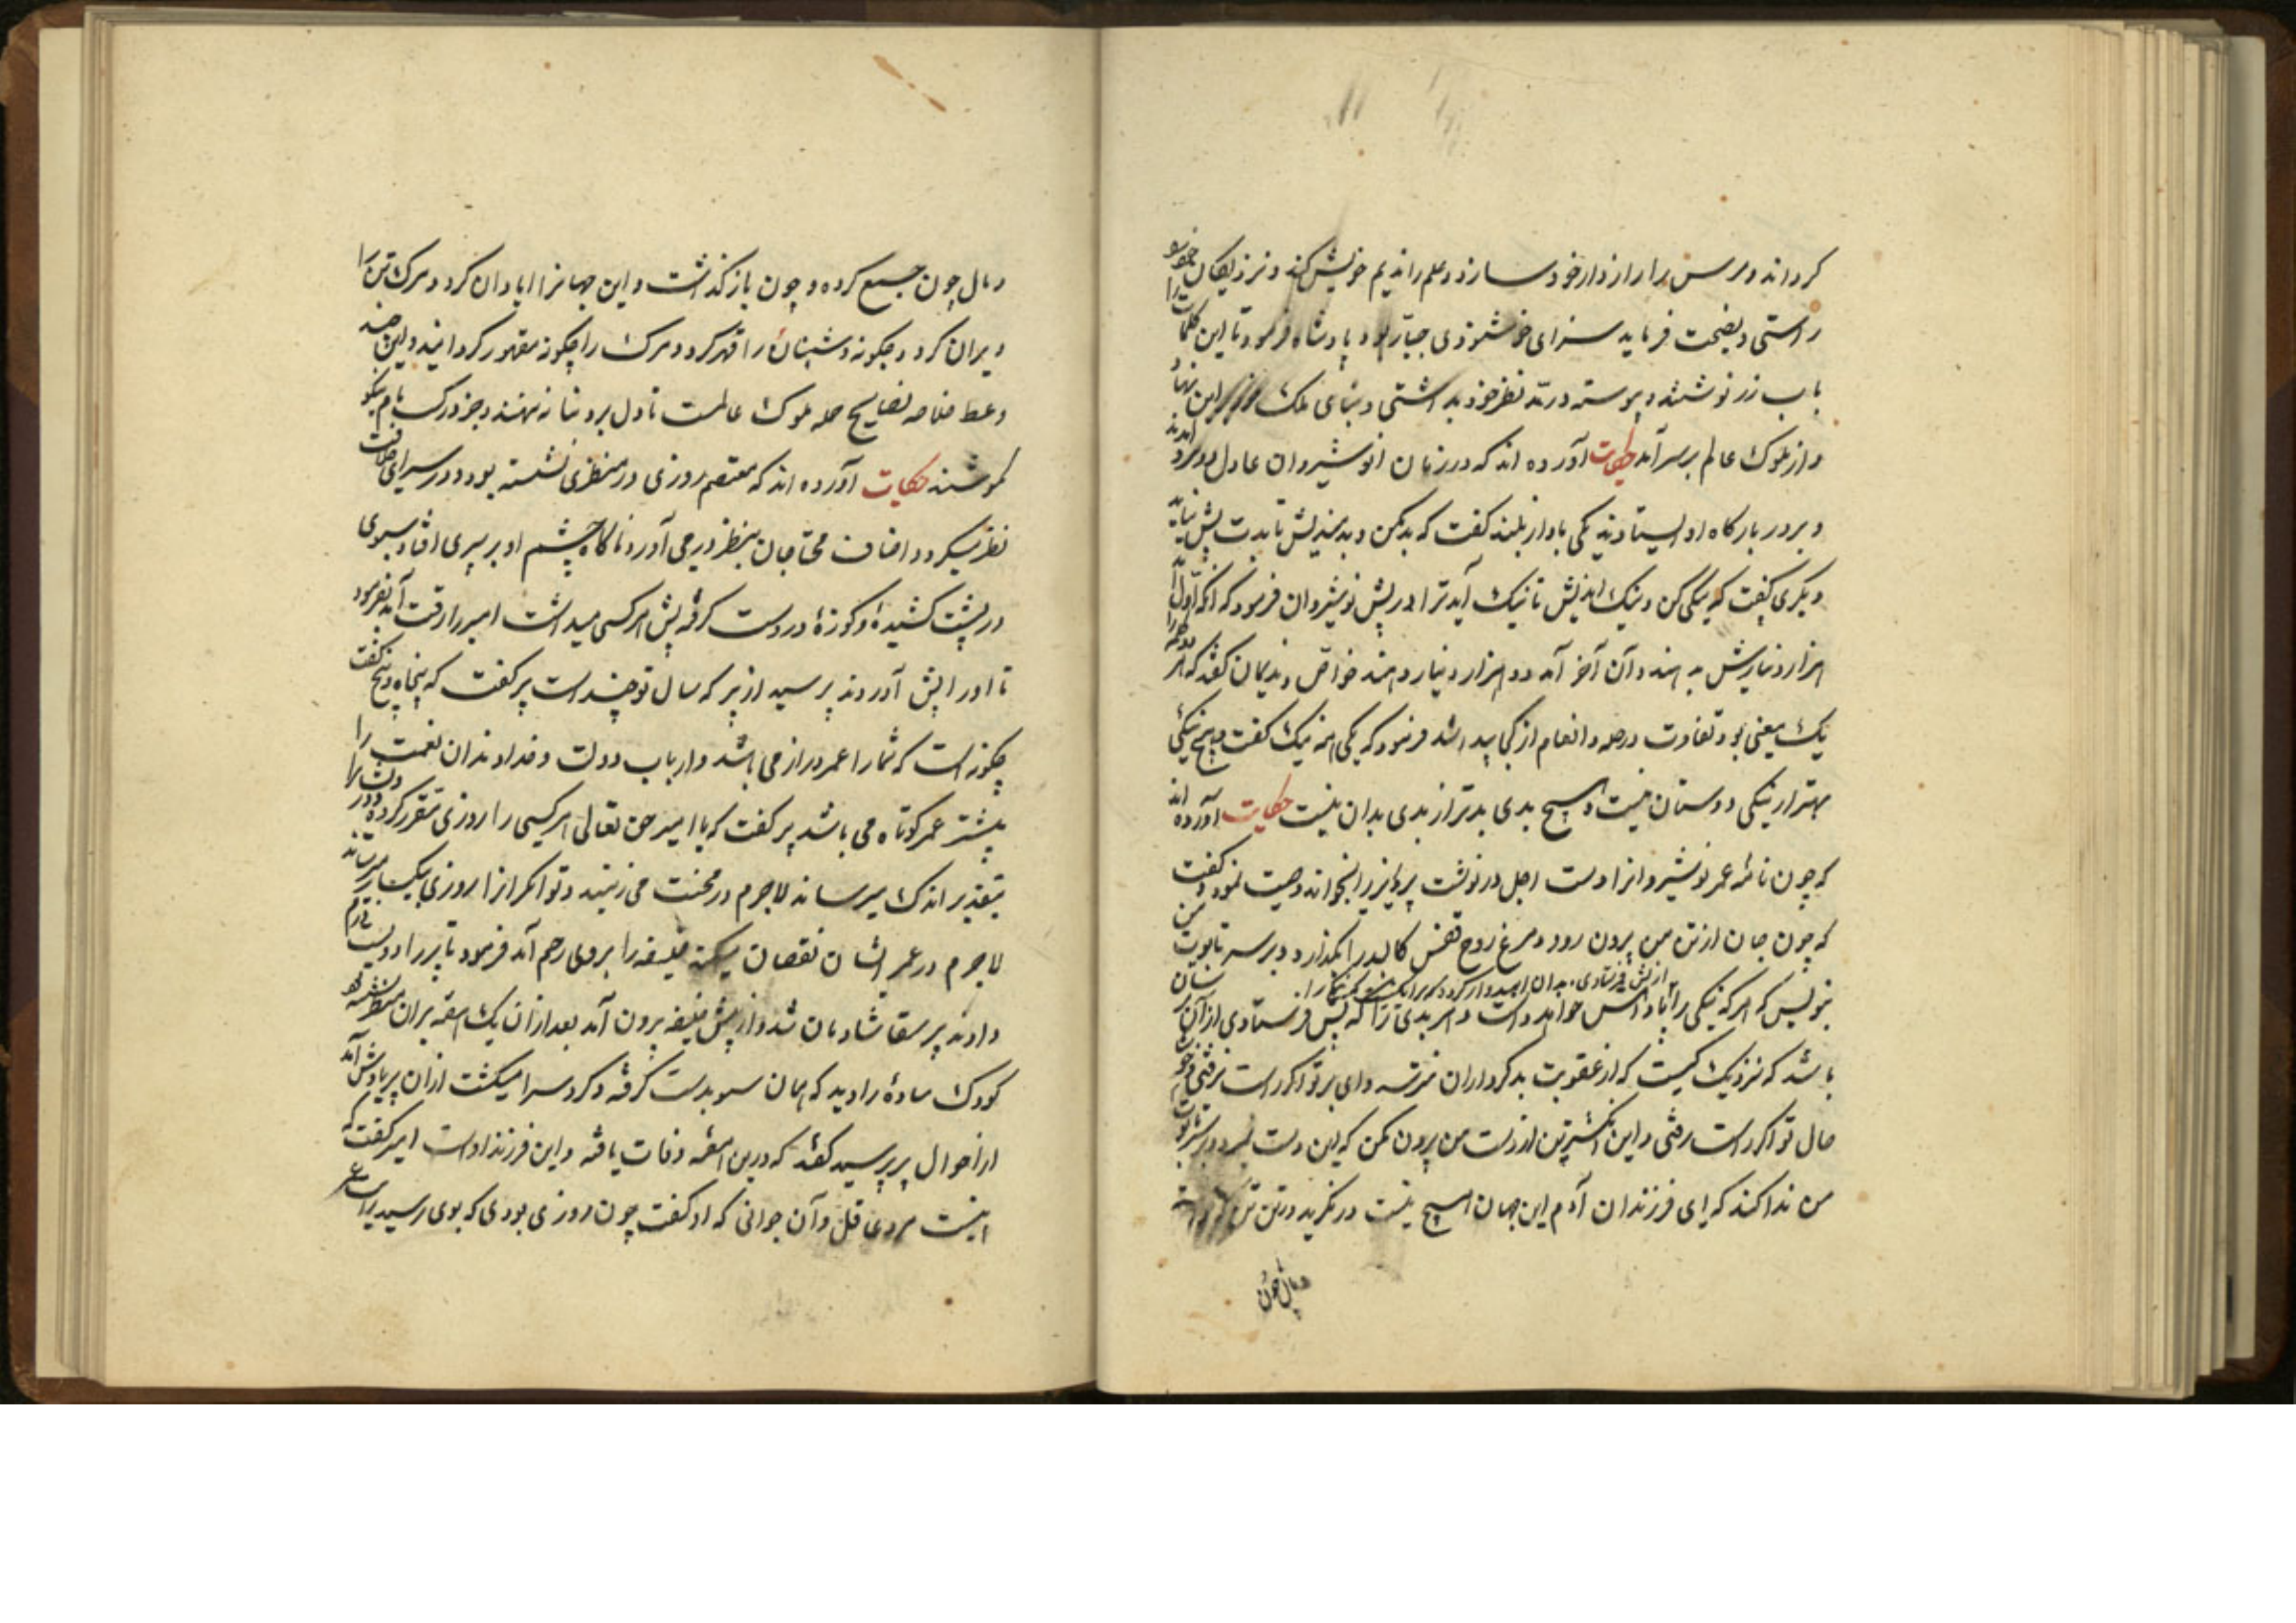 کرداند و مرس را راز دار خود سازد و علم را ندیم خویش کند و نزدیکان خود را
راستی و نصیحت فرماید سزای خوشنودی جبّار بود پادشاه فرمود تا این کلمات را
باب زر نوشتند و پیوسته در مدّ نظر خود بداشتی و بنای ملک این نهاد
و از ملوک عالم بر سر آمد حکایت آورده اند که در زمان انوشیروان عادل دو مرد آمدند
و بر در بارگاه او ایستادند یکی باواز بلند گفت که بد مکن و بد میندیش تا بدت پیش نیاید
و دیگری گفت که نیکی کن و نیک اندیش تا نیک آید ترا در پیش نوشیروان فرمود که آنکه اوّل آمد
هزار دینارش بدهند و آن آخر آمد دو هزار دینار دهند خواصّ و ندیمان گفتند که هر دو را
یک معنی بود تفاوت در صله و انعام از کجا پیدا شد فرمود که یکی همه نیک گفت و هیچ نیکی
بهتر از نیکی دوستان نیست و هیچ بدی بدتر از بدی بدان نیست حکایت آورده اند
که چون نامهٔ عمر نوشیروانرا دست اجل در نوشت پرویز را بخواند وصیت نمود و گفت
که چون جان از تن من بیرون رود و مرغ روح قفس کالبد را بگذارد و بر سر تابوت من
از پیش فرستادی بدان امیدوار گردد که را
بنویس که هر که نیکی را پاداش خواهد داشت و هر بدی ترا که پیش فرستادی از آن ترسان
باشد که نزدیک کیست که از عقوبت بدکرداران نترسد وای بر تو اگر راست نرفتی و خوشا
حال تو اگر راست رفتی و این انگشترین از دست من بیرون مکن که این دست بر سر تابوت
من ندا کند که ای فرزندان آدم این جهان هیچ نیست در نگرید درین تن
و مال چون
و مال چون جمع کرده و چون بازگذاشت و این جهانرا آبادان کرد و مرک تن را
ویران کرد و چگونه دشمنان را قهر کرد و مرک را چگونه مقهور گردانید و این چند
وعظ خلاصه نصایح جمله ملوک عالمست تا دل برو بنا ننهند و جز در کسب نام نیکو
نکوشند حکایت آورده اند که معتصم روزی در منظری نشسته بود و در سرای خلافت
نظر میکرد و اصناف محتاجان بنظر در می آورد ناگاه چشم او بر پیری افتاد سبوی
در پشت کشیده و کوزهٔ در دست گرفته پیش هر کسی میداشت امیر را رقت آمد بفرمود
تا او را پیش آوردند پرسید از پیر که سال تو چند است پیر گفت که پنجاه و پنج گفت
چگونه است که شما را عمر دراز می باشد و ارباب دولت و خداوندان نعمت را
بیشتر عمر کوتاه می باشد پیر گفت که یا امیر حق تعالی هر کسی را روزی مقرر کرده درویشانرا
بتقدیر اندک میرساند لاجرم در محنت می زیند و توانگرانرا روزی بیکبار میرساند
لاجرم در عمر ایشان نقصان میکند خلیفه را بروی رحم آمد فرمود تا پیر را دویست درم
دادند پیر سقا شادمان شد و از پیش خلیفه بیرون آمد بعد از آن یک هفته بران منظر نشسته بود
کودک سادهٔ را دید که همان سبو بدست گرفته و گرد سرا میگشت ازان پیر یادش آمد
از احوال پیر پرسید گفتند که درین هفته وفات یافته و این فرزند اوست امیر گفت که
اینست مردی عقل و آن جوانی که او گفت چون روزی بودی که بوی رسید